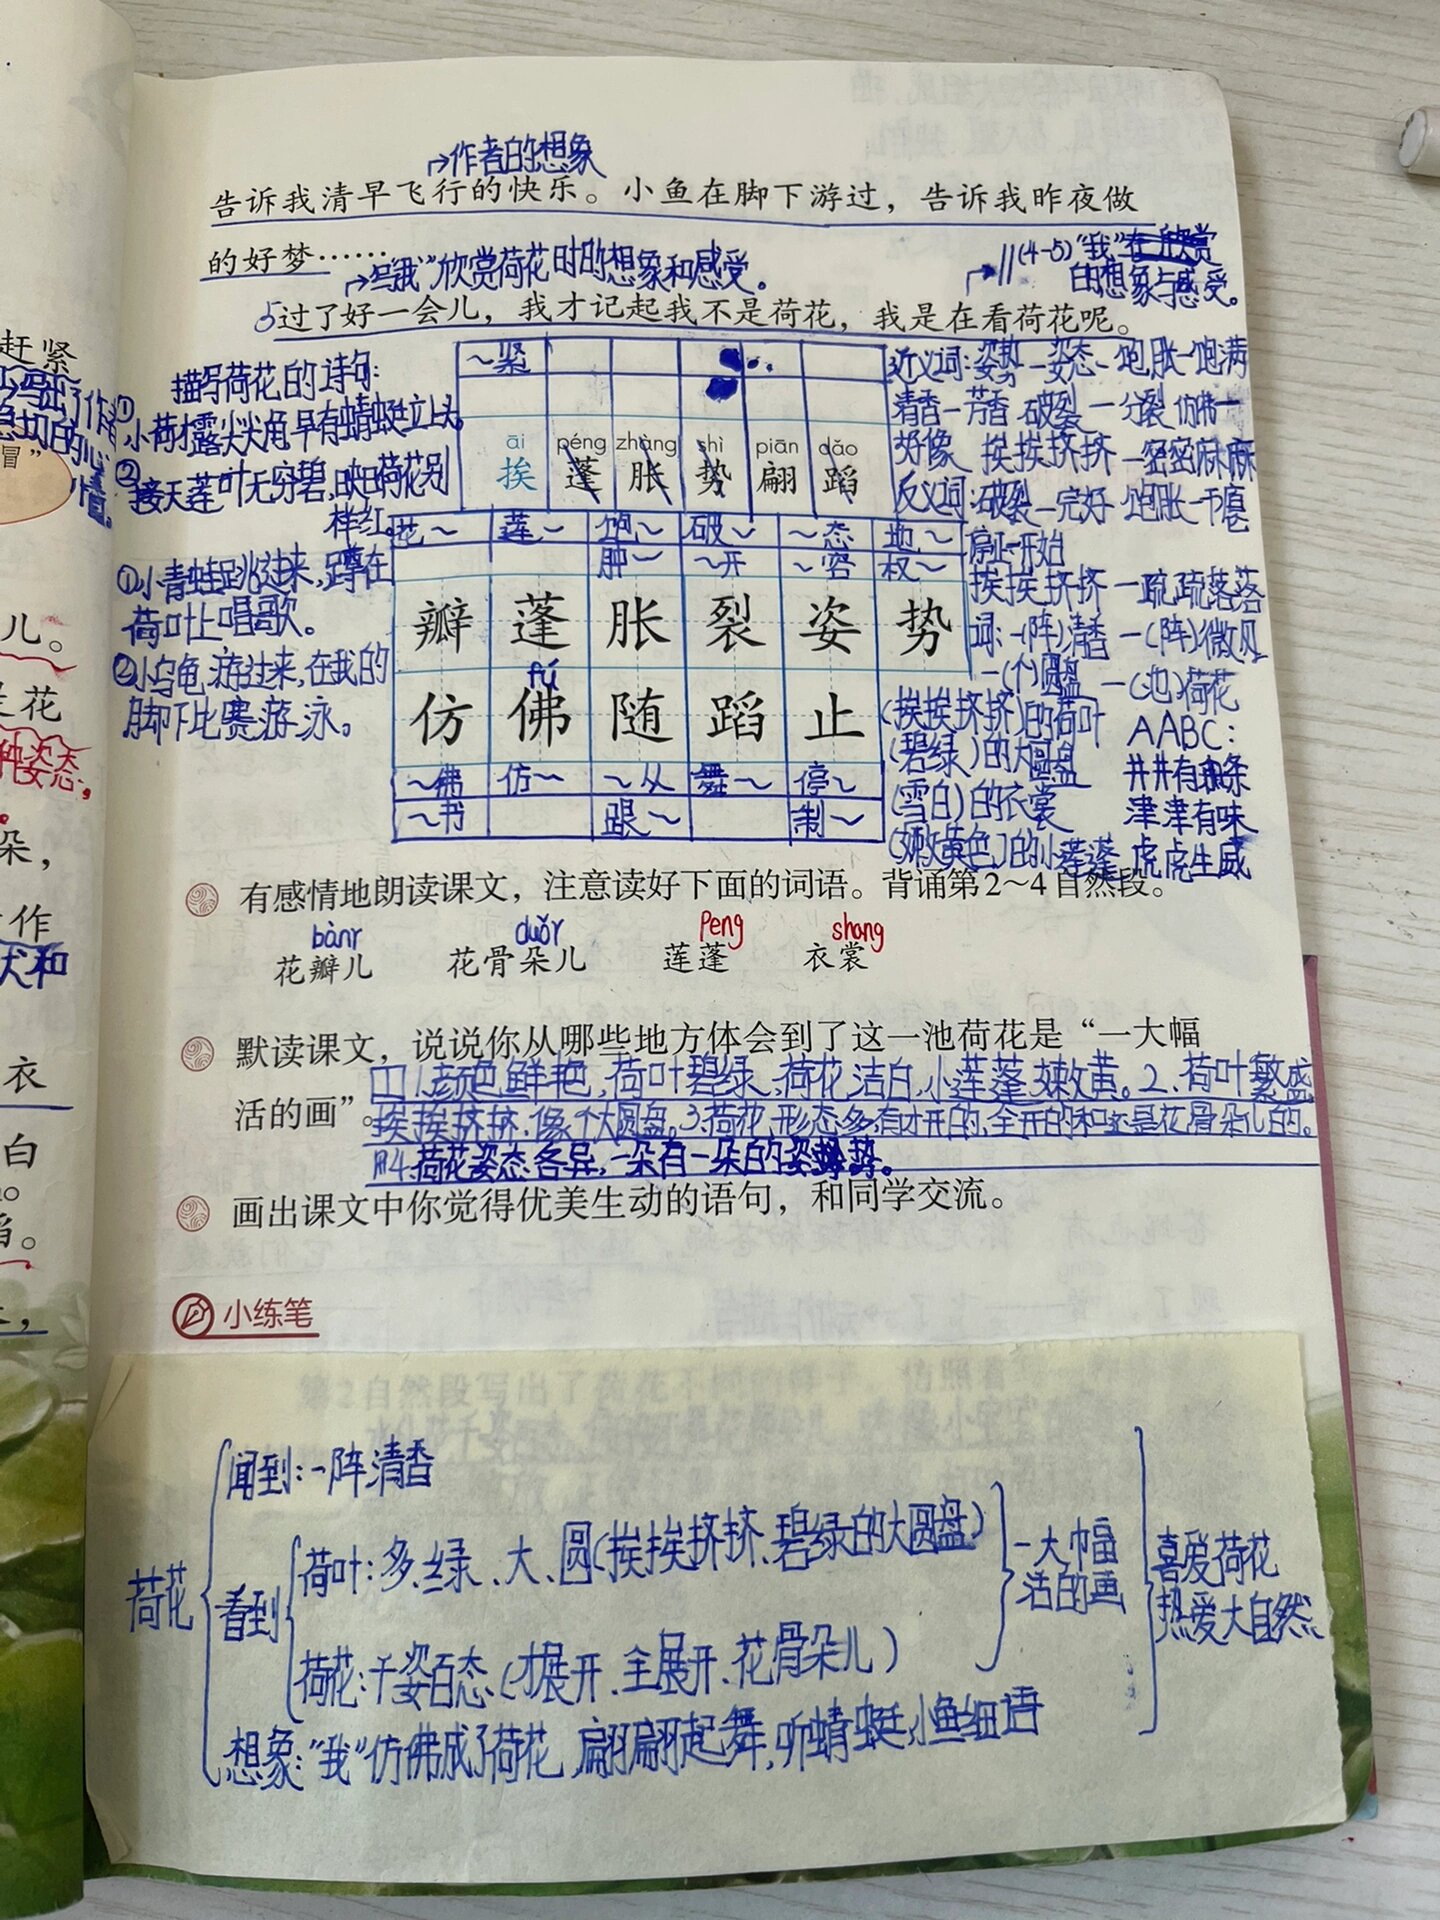 →作者的想象
告诉我清早飞行的快乐。小鱼在脚下游过，告诉我昨夜做
的好梦……
→写“我”欣赏荷花时的想象和感受。
//(4-5)“我”在欣赏
的想象与感受。
5过了好一会儿，我才记起我不是荷花，我是在看荷花呢。
赶紧
冒”
儿。
花
种姿态，
朵，
作
衣
白
描写荷花的诗句:
①小荷才露尖尖角,早有蜻蜓立上头。
②接天莲叶无穷碧,映日荷花别
样红。
①小青蛙跳过来,蹲在
荷叶上唱歌。
②小乌龟游过来,在我的
脚下比赛游泳。
～紧
āi péng zhàng shì piān dǎo
挨 蓬 胀 势 翩 蹈
花～ 莲～ 饱～ 破～ ～态 地～
肿～ ～开 ～容 权～
瓣 蓬 胀 裂 姿 势
fú
仿 佛 随 蹈 止
～佛 仿～ ～从 舞～ 停～
～书 跟～ 制～
近义词:姿势—姿态 饱胀—饱满
清香—芳香 破裂—分裂 仿佛—
好像 挨挨挤挤—密密麻麻
反义词:破裂—完好 饱胀—干瘪
停止—开始
挨挨挤挤—疏疏落落
词:一(阵)清香 一(阵)微风
一(个)圆盘 一(池)荷花
(挨挨挤挤)的荷叶
(碧绿)的大圆盘
(雪白)的衣裳
(嫩黄色)的小莲蓬
AABC:
井井有条
津津有味
虎虎生威
有感情地朗读课文，注意读好下面的词语。背诵第2～4自然段。
bànr duǒr Peng shang
花瓣儿 花骨朵儿 莲蓬 衣裳
默读课文，说说你从哪些地方体会到了这一池荷花是“一大幅
活的画”。
1.颜色鲜艳,荷叶碧绿、荷花洁白,小莲蓬嫩黄。2.荷叶繁盛,
挨挨挤挤,像个大圆盘。3.荷花形态多,有才开的、全开的和还是花骨朵儿的。
4.荷花姿态各异,一朵有一朵的姿势。
画出课文中你觉得优美生动的语句，和同学交流。
小练笔
荷花
闻到:一阵清香
看到
荷叶:多、绿、大、圆(挨挨挤挤、碧绿的大圆盘)
荷花:千姿百态(才展开、全展开、花骨朵儿)
一大幅
活的画
想象:“我”仿佛成了荷花,翩翩起舞,听蜻蜓、小鱼细语
喜爱荷花
热爱大自然